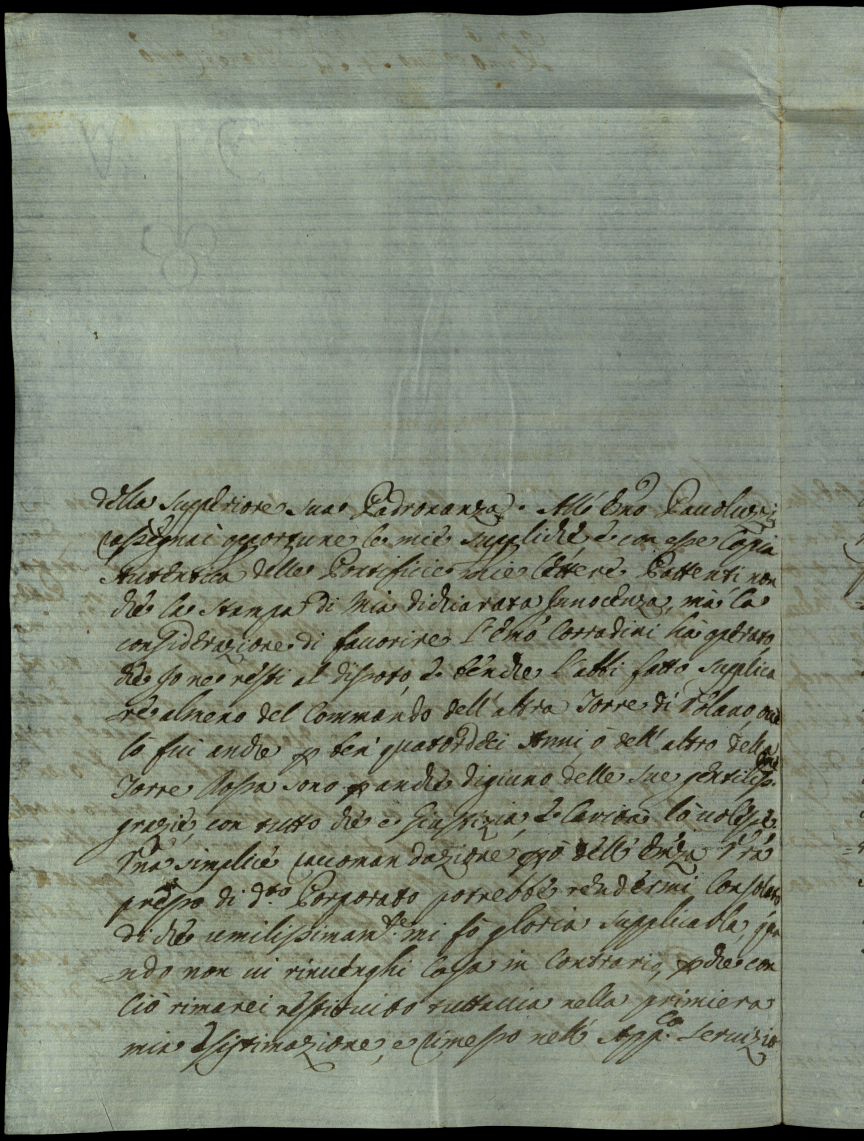 della superiore sua Padronanza. All' Emo Paulucci
rassegnai opportune le mie suppliche, e con esse Copia
Autentica delle Pontificie mie Lettere Pattenti non
che la stampa di mia dichiarata Innocenza, mà la
considerazione di favorire l'Emo Corradini hà operato
che Io ne resti al disoto, e benche l'abbi fatto supplica
re almeno del Commando dell'altra Torre di
lò fui anche p ben quatordeci Anni, ò dell'altro della
Torre sono anche digiuno delle sue gentiliss.
grazie, con tutto che e Giustizia e Carità lò volesse
Una simplice racomandazione dell' Enza Vra
presso di do Porporato potrebbe rendermi Consolato
di che umilissimamte mi fò gloria supplicarla, qua
ndo non vi rinvenghi Cosa in Contrario, p che con
ciò rimarei restituito tuttavia nella primiera
mia esistimazione, e rimesso nell' Appco servizio